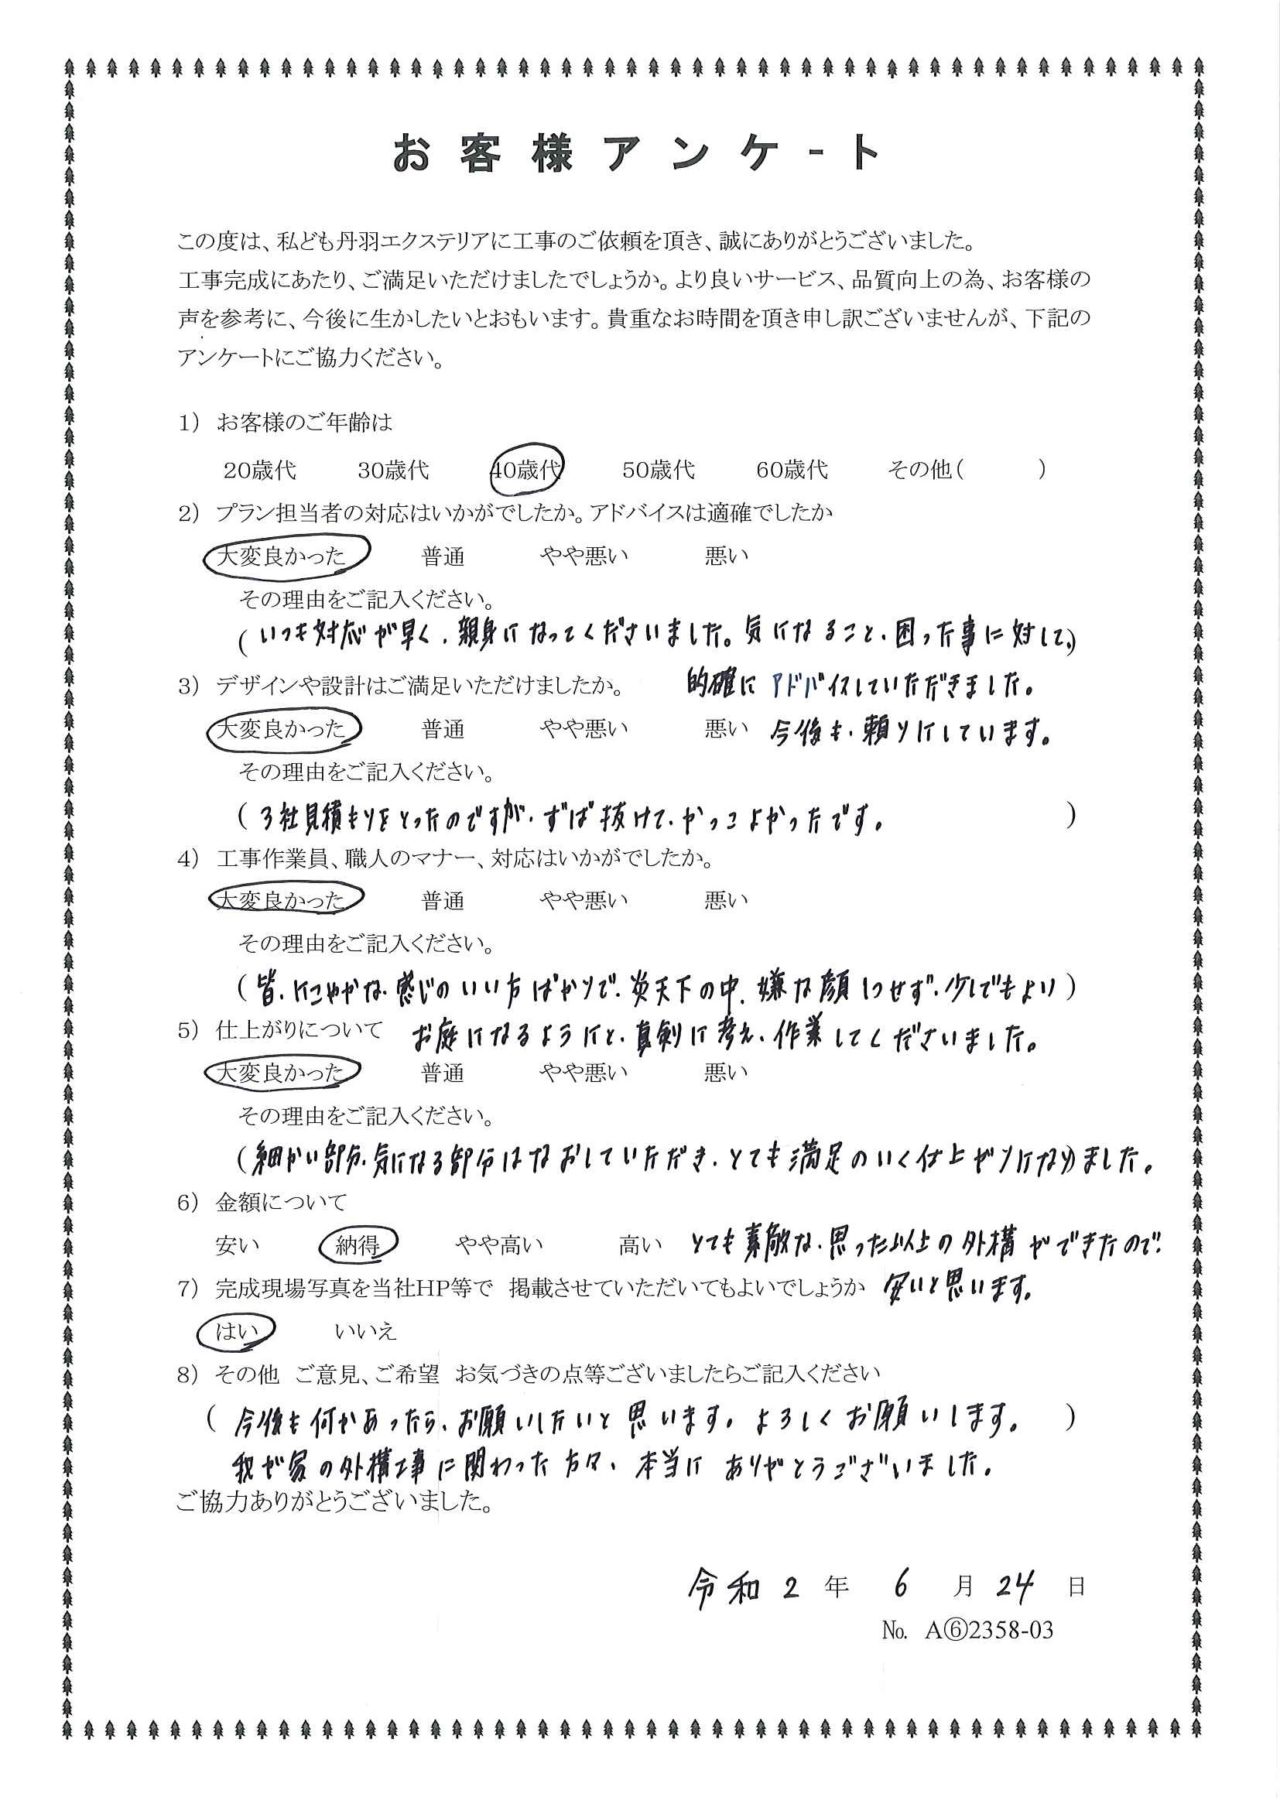 お客様アンケ-ト
この度は、私ども丹羽エクステリアに工事のご依頼を頂き、誠にありがとうございました。
工事完成にあたり、ご満足いただけましたでしょうか。より良いサービス、品質向上の為、お客様の
声を参考に、今後に生かしたいとおもいます。貴重なお時間を頂き申し訳ございませんが、下記の
アンケートにご協力ください。
1) お客様のご年齢は
20歳代 30歳代 40歳代 50歳代 60歳代 その他( )
2) プラン担当者の対応はいかがでしたか。アドバイスは適確でしたか
大変良かった 普通 やや悪い 悪い
その理由をご記入ください。
(いつも対応が早く、親身になってくださいました。気になること、困った事に対して、)
3) デザインや設計はご満足いただけましたか。 的確にアドバイスしていただきました。
大変良かった 普通 やや悪い 悪い 今後も、頼りにしています。
その理由をご記入ください。
(3社見積もりをとったのですが、ずば抜けて、かっこよかったです。 )
4) 工事作業員、職人のマナー、対応はいかがでしたか。
大変良かった 普通 やや悪い 悪い
その理由をご記入ください。
(皆、にこやかな、感じのいい方ばかりで、炎天下の中、嫌な顔1つせず、少しでもよい)
5) 仕上がりについて お庭になるようにと、真剣に考え、作業してくださいました。
大変良かった 普通 やや悪い 悪い
その理由をご記入ください。
(細かい部分、気になる部分はなおしていただき、とても満足のいく仕上がりになり)ました。
6) 金額について
安い 納得 やや高い 高い とても素敵な、思った以上の外構ができたので、
7) 完成現場写真を当社HP等で 掲載させていただいてもよいでしょうか 安いと思います。
はい いいえ
8) その他 ご意見、ご希望 お気づきの点等ございましたらご記入ください
(今後も何かあったら、お願いしたいと思います。よろしくお願いします。 )
我が家の外構工事に関わった方々、本当にありがとうございました。
ご協力ありがとうございました。
令和2年 6月24日
№ A⑥2358-03